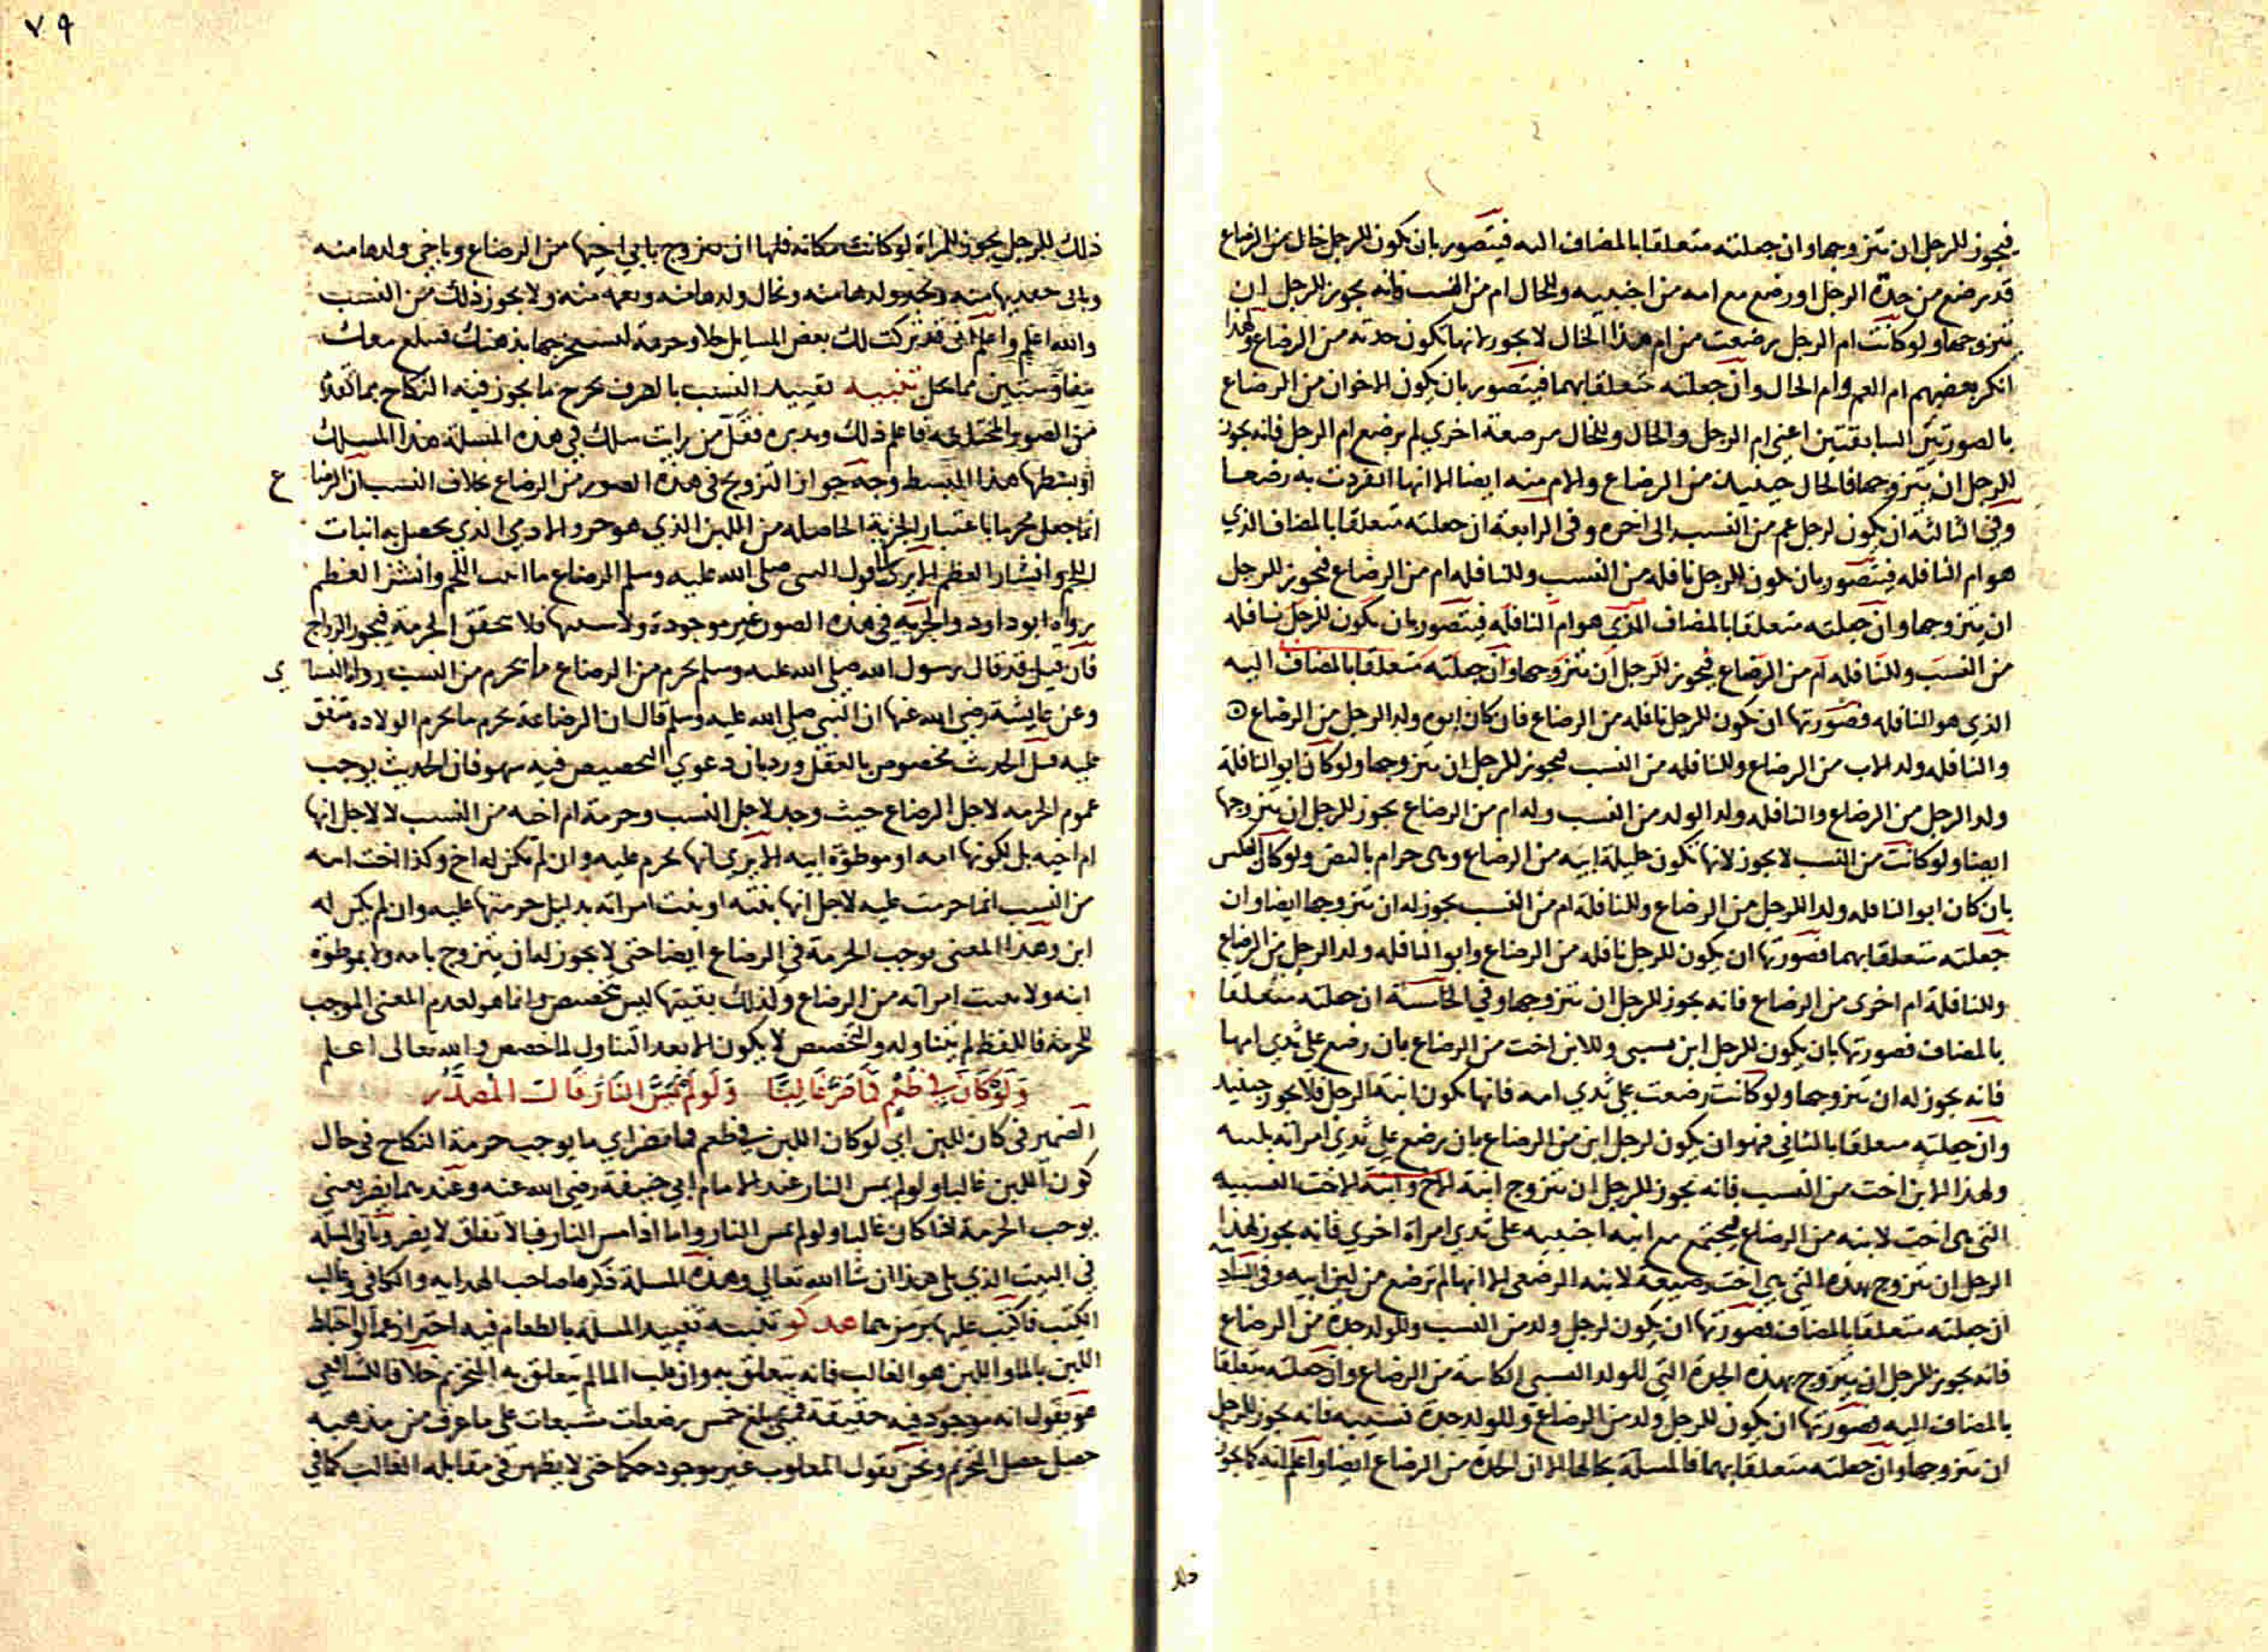 فيجوز للرجل ان يتزوجها وان جعلته متعلقا بالمضاف اليه فيتصور بان يكون للرجل خال من الرضاع
قد رضع من جدة الرجل او رضع مع امه من اجنبيه وللخال ام من النسب فانه يجوز للرجل ان
يتزوجها ولو كانت ام الرجل رضعت من ام هذا الخال لا يجوز لانها تكون جدته من الرضاع ولهذا
انكر بعضهم ام العم وام الخال وان جعلته متعلقا بهما فيتصور بان يكون الاخوان من الرضاع
بالصورتين السابقتين اعني ام الرجل والخال وللخال مرضعة اخري لم ترضع ام الرجل فانه يجوز
للرجل ان يتزوجها فالخال حينيذ من الرضاع والام منه ايضا الا انها انفردت به رضعا
وفي الثالثة ان يكون لرجل عم من النسب الى اخره وفي الرابعة ان جعلته متعلقا بالمضاف الذي
هو ام النافله فيتصور بان يكون للرجل نافله من النسب وللنافله ام من الرضاع فيجوز للرجل
ان يتزوجها وان جعلته متعلقا بالمضاف الذي هو ام النافله فيتصور بان يكون للرجل نافله
من النسب وللنافله ام من الرضاع فيجوز للرجل ان يتزوجها وان جعلته متعلقا بالمضاف اليه
الذي هو النافله فصورتها ان يكون للرجل نافله من الرضاع فان كان ابوه ولد الرجل من الرضاع
والنافله ولد الاب من الرضاع وللنافله من النسب فيجوز للرجل ان يتزوجها ولو كان ابو النافلة
ولد الرجل من الرضاع والنافله ولد الولد من النسب وله ام من الرضاع يجوز للرجل ان يتزوجها
ايضا ولو كانت من النسب لا يجوز لانها تكون حليلة ابنه من الرضاع وهي حرام بالنص ولو كان بالعكس
بان كان ابو النافله ولد الرجل من الرضاع وللنافلة ام من النسب يجوز له ان يتزوجها ايضا وان
جعلته متعلقا بهما فصورتها ان يكون للرجل نافله من الرضاع وابو النافله ولد الرجل من الرضاع
وللنافلة ام اخرى من الرضاع فانه يجوز للرجل ان يتزوجها وفي الخامسة ان جعلته متعلقا
بالمضاف فصورتها بان يكون للرجل ابن نسبي وللابن اخت من الرضاع بان رضع علي ثدي امها
فانه يجوز له ان يتزوجها ولو كانت رضعت علي ثدي امه فانها تكون ابنة الرجل فلا يجوز حينيذ
وان جعلته متعلقا بالثاني فهو ان يكون لرجل ابن من الرضاع بان رضع علي ثدي امراته بلبنه
ولهذا الابن اخت من النسب فانه يجوز للرجل ان يتزوج ابنة الاخ وابنة الاخت النسبيه
التي هي اخت لابنه من الرضاع فيجتمع مع ابنه اجنبيه على ثدي امراة اخري فانه يجوز لهذا
الرجل ان يتزوج بهذه التي هي اخت رضيعة لابنه الرضعي الا انها لم ترضع من لبن ابيه وفي السادسة
ان جعلته متعلقا بالمضاف فصورتها ان يكون لرجل ولد من النسب وللولد جدة من الرضاع
فانه يجوز للرجل ان يتزوج بهذه الجدة التي للولد النسبي الكاينة من الرضاع وان جعلته متعلقا
بالمضاف اليه فصورتها ان يكون للرجل ولد من الرضاع وللولد جدة نسبيه فانه يجوز للرجل
ان يتزوجها وان جعلته متعلقا بهما فالمسلة بحالها الا ان الجدة من الرضاع ايضا واعلم انه كما يجوز
٧٩
ذلك للرجل يجوز للمراة لو كانت مكانه فلها ان تتزوج بابي اخيها من الرضاع وباخي ولدها منه
وبابي حفيدها منه وبجد ولدها منه وبخال ولدها منه وبعمه منه ولا يجوز ذلك من النسب
والله اعلم واعلم اني قد تركت لك بعض المسايل حلا وحرمة لتستخرجها بذهنك
تنبيه تقييد النسب بالعرف يخرج ما يجوز فيه النكاح مما تقدم
من الصور المختلفه فاعلم ذلك وتدبره فقل من رايت سلك في هذه المسلة هذا المسلك
او بسطها هذا المبسط وجه جواز التزويج في هذه الصور من الرضاع بخلاف النسب ان الرضاع
انما جعل محرما باعتبار الجزية الحاصله من اللبن الذي هو جزو الادمي الذي يحصل به انبات
اللحم وانتشار العظم الا يرى الى قول النبي صلى الله عليه وسلم الرضاع ما انبت اللحم وانشز العظم
رواه ابو داود والجزيه في هذه الصور غير موجودة ولا سببها فلا تتحقق الحرمة فيجوز الزواج
فان قيل قد قال رسول الله صلى الله عليه وسلم يحرم من الرضاع ما يحرم من النسب رواه النساي
وعن عايشة رضي الله عنها ان النبي صلى الله عليه وسلم قال ان الرضاعة تحرم ما يحرم الولاده متفق
عليه قيل الحديث مخصوص بالعقل ورد بان دعوي التخصيص فيه سهو فان الحديث يوجب
عموم الحرمه لاجل الرضاع حيث وجد لاجل النسب وحرمة ام اخيه من النسب لا لاجل انها
ام اخيه بل لكونها امه او موطوة ابيه الا يري انها تحرم عليه وان لم يكن له اخ وكذا اخت ابنه
من النسب انما حرمت عليه لاجل انها بنته او بنت امراته بدليل حرمتها عليه وان لم يكن له
ابن وهذا المعنى يوجب الحرمة في الرضاع ايضا حتى لا يجوز له ان يتزوج بامه ولا بموطوة
ابنه ولا بنت امراته من الرضاع وكذلك بقيتها ليس بتخصيص وانما هو لعدم المعنى الموجب
للحرمة فاللفظ لم يتناوله والتخصيص لا يكون الا بعد التناول لما خصص والله تعالى اعلم
وَلَوْ كَانَ فِي طُعْمٍ فَمَا ضَرَّ غَالِبًا وَلَو لَم تَمَسَّ النَّارُ قَالَ المُصَدَّرُ
الضمير في كان للبن اي لو كان اللبن في طعم فما ضر اي ما يوجب حرمة النكاح في حال
كون اللبن غالبا ولو لم تمس النار عند الامام ابي حنيفة رضي الله عنه وعندهما يضر يعني
يوجب الحرمة اذا كان غالبا ولو لم تمس النار واما اذا مس النار فبالاتفاق لا يضر وتاتي المسلة
في البيت الذي يلي هذا ان شا الله تعالى وهذه المسلة ذكرها صاحب الهدايه والكافي وغالب
الكتب فاكتب عليها برمزهما تنبيه تقييد المسلة بالطعام فيه احترازا عما لو اختلط
اللبن بالما واللبن هو الغالب فانه يتعلق به وان غلب الما لم يتعلق به التحريم خلافا للشافعي
هو يقول انه موجود فيه حقيقة فمتى بلغ خمس رضعات مشبعات على ما عرف من مذهبه
حصل التحريم ونحن نقول المغلوب غير موجود حكما حتى لا يظهر في مقابله الغالب كما في